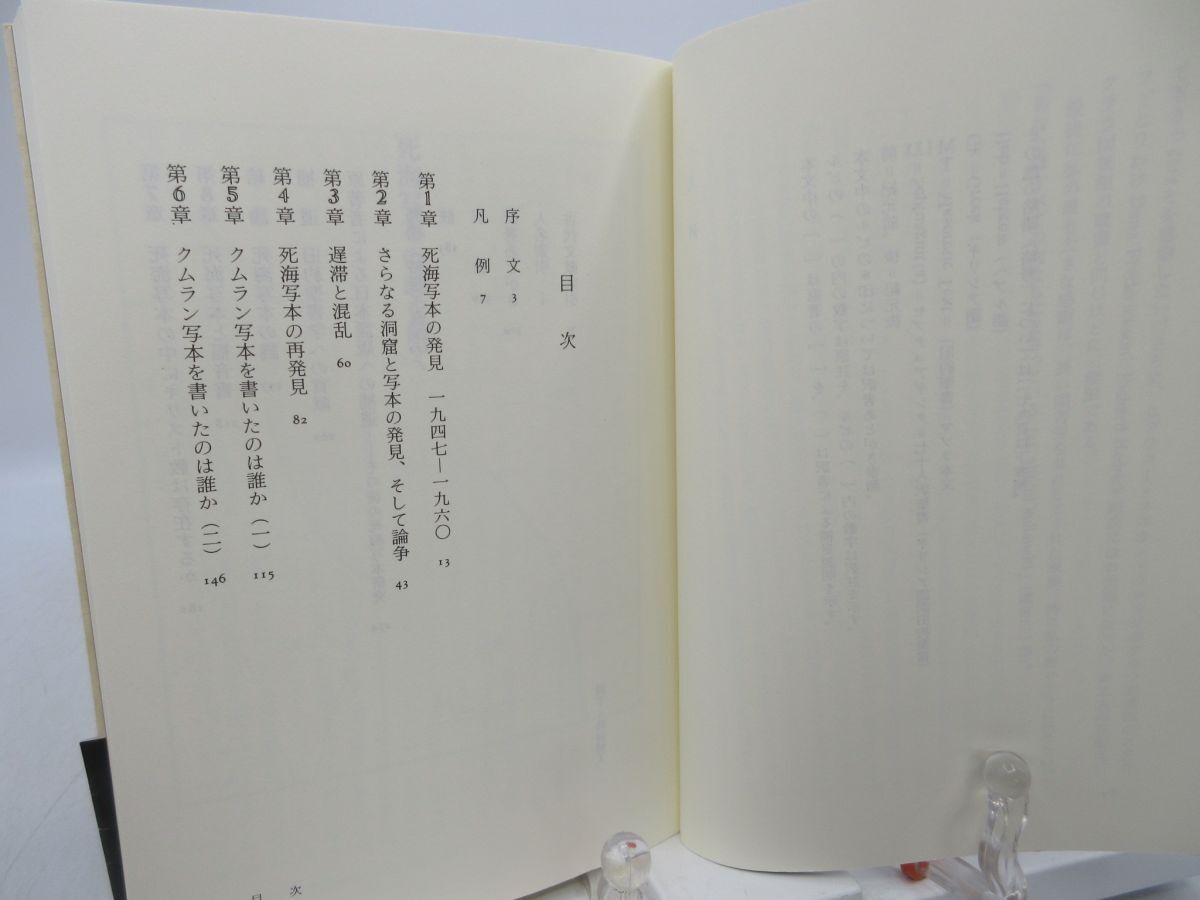 目次
序文 3
凡例 7
第1章 死海写本の発見 一九四七―一九六〇 13
第2章 さらなる洞窟と写本の発見、そして論争 43
第3章 遅滞と混乱 60
第4章 死海写本の再発見 82
第5章 クムラン写本を書いたのは誰か（一） 115
第6章 クムラン写本を書いたのは誰か（二） 146
目次